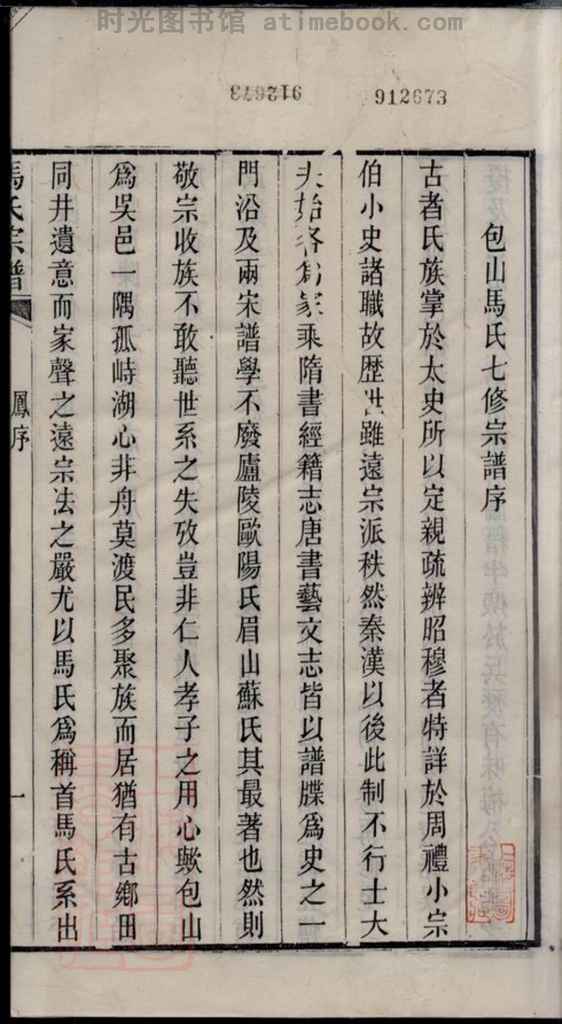 时光图书馆 atimebook.com
912673
912673
包山馬氏七修宗譜序
古者氏族掌於太史所以定親疏辨昭穆者特詳於周禮小宗
伯小史諸職故歷世雖遠宗派秩然秦漢以後此制不行士大
夫始各爲家乘隋書經籍志唐書藝文志皆以譜牒爲史之一
門沿及兩宋譜學不廢廬陵歐陽氏眉山蘇氏其最著也然則
敬宗收族不敢聽世系之失攷豈非仁人孝子之用心歟包山
爲吳邑一隅孤峙湖心非舟莫渡民多聚族而居猶有古鄉田
同井遺意而家聲之遠宗法之嚴尤以馬氏爲稱首馬氏系出
馬氏宗譜
鳳序
一